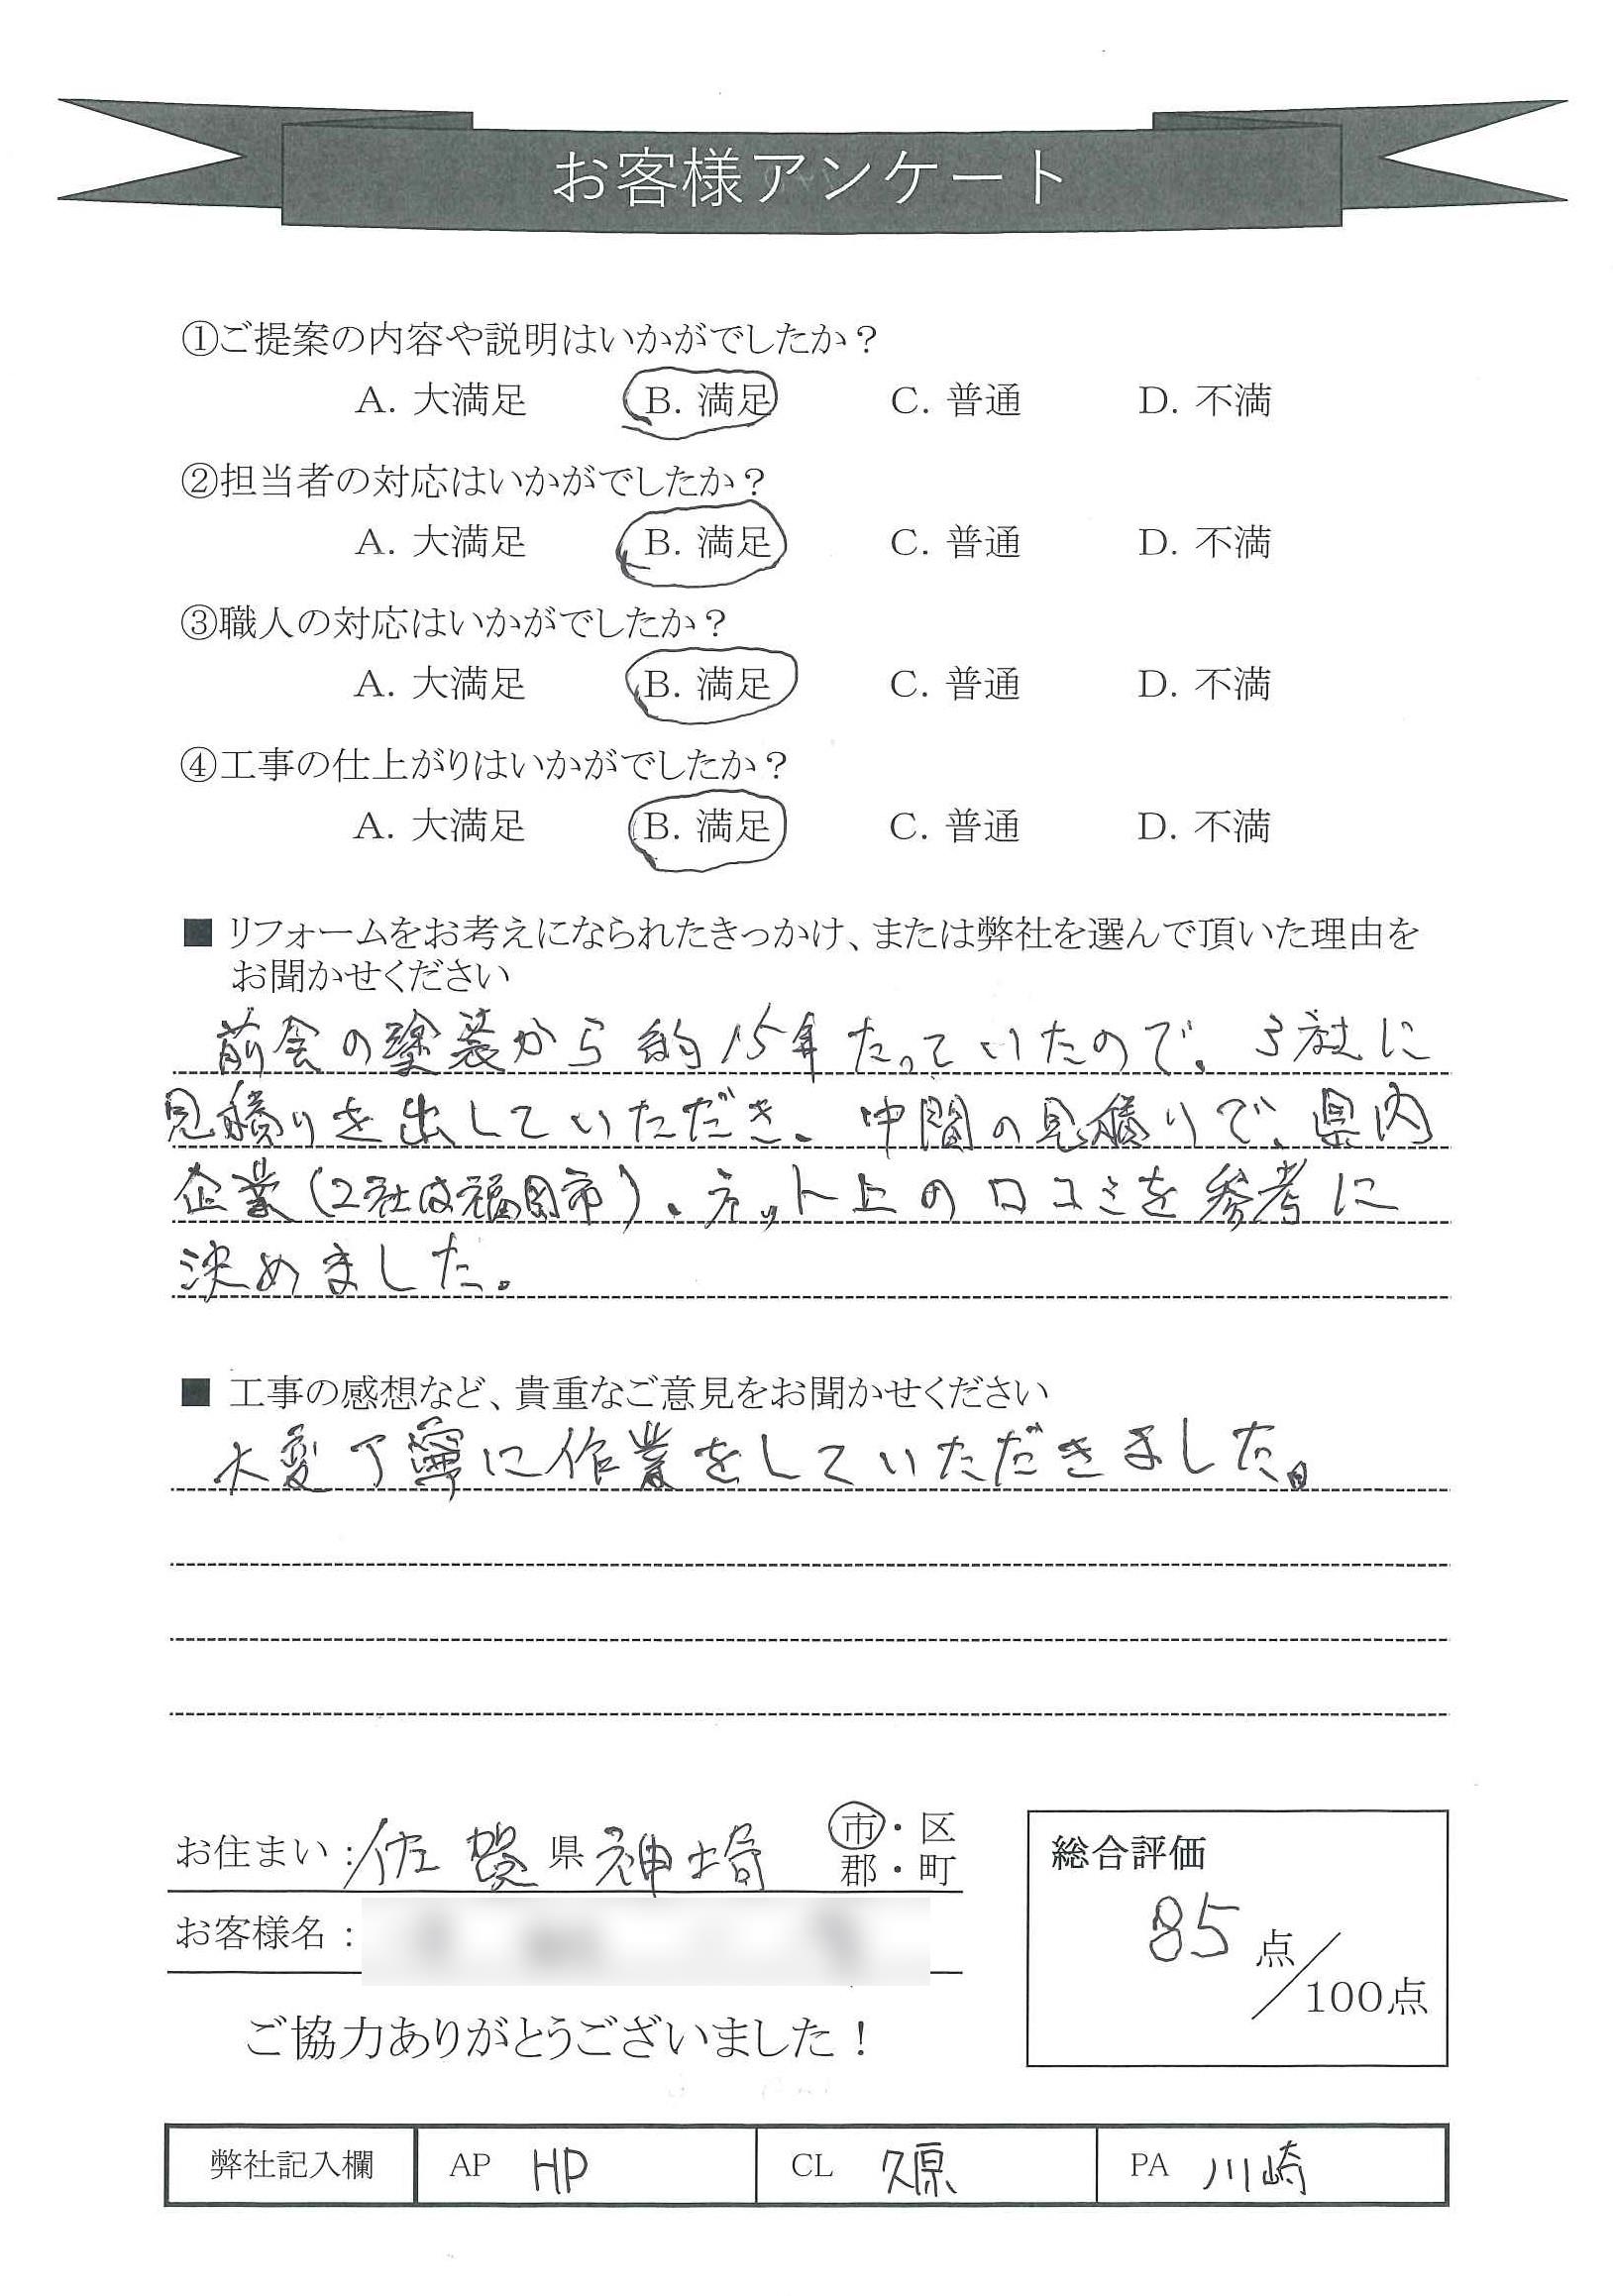 お客様アンケート
①ご提案の内容や説明はいかがでしたか？
A. 大満足 B. 満足 C. 普通 D. 不満
②担当者の対応はいかがでしたか？
A. 大満足 B. 満足 C. 普通 D. 不満
③職人の対応はいかがでしたか？
A. 大満足 B. 満足 C. 普通 D. 不満
④工事の仕上がりはいかがでしたか？
A. 大満足 B. 満足 C. 普通 D. 不満
■ リフォームをお考えになられたきっかけ、または弊社を選んで頂いた理由を
お聞かせください
前会の塗装から約15年たっていたので、3社に
見積りを出していただき、中間の見積りで、県内
企業(2社は福岡市)、ネット上の口コミを参考に
決めました。
■ 工事の感想など、貴重なご意見をお聞かせください
大変丁寧に作業をしていただきました。
お住まい : 佐賀県神埼 市・区
郡・町
お客様名 :
総合評価
85点
/100点
ご協力ありがとうございました！
弊社記入欄 AP HP CL 久原 PA 川崎